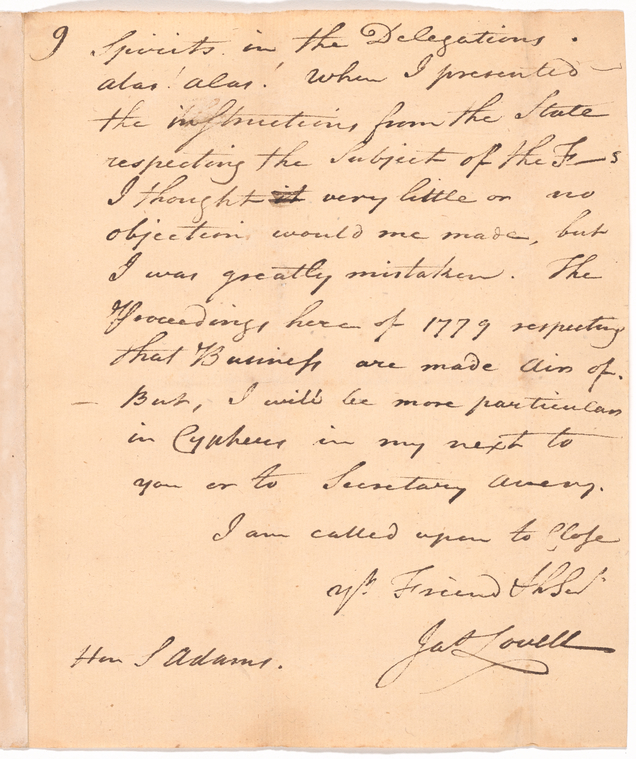 9
Spirits in the Delegations.
alas! alas! When I presented
the instructions from the State
respecting the Subject of the F—s
I thought it very little or no
objection would me made, but
I was greatly mistaken. The
Proceedings here of 1779 respecting
that Business are made Airs of.
— But, I will be more particular
in Cyphers in my next to
you or to Secretary Avery.
I am called upon to Close
yr. Friend & h Servt
Jas Lovell
Hon S Adams.